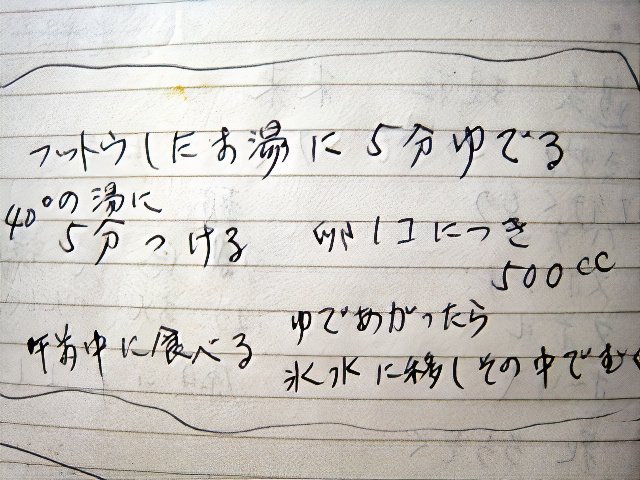 フットウしたお湯に5分ゆでる
40°の湯に
5分つける
卵1コにつき
500cc
午前中に食べる
ゆであがったら
氷水に移しその中でむく